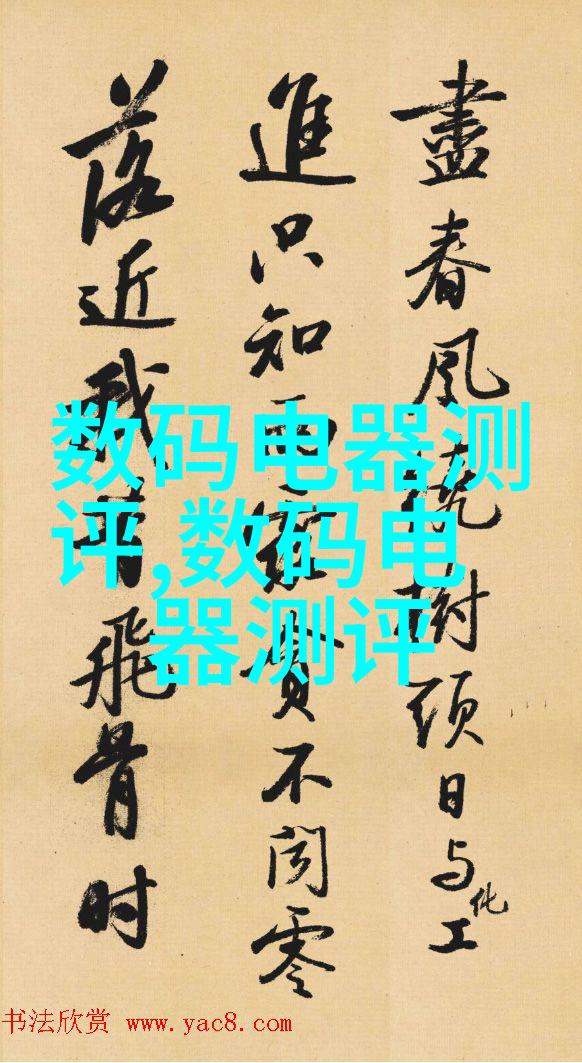 盡春風繞樹頭日与化工
進只知雨露貪不聞零
落近我昔飛骨时
数码电器测
评,数码电
器测评
书法欣赏 www.yac8.com